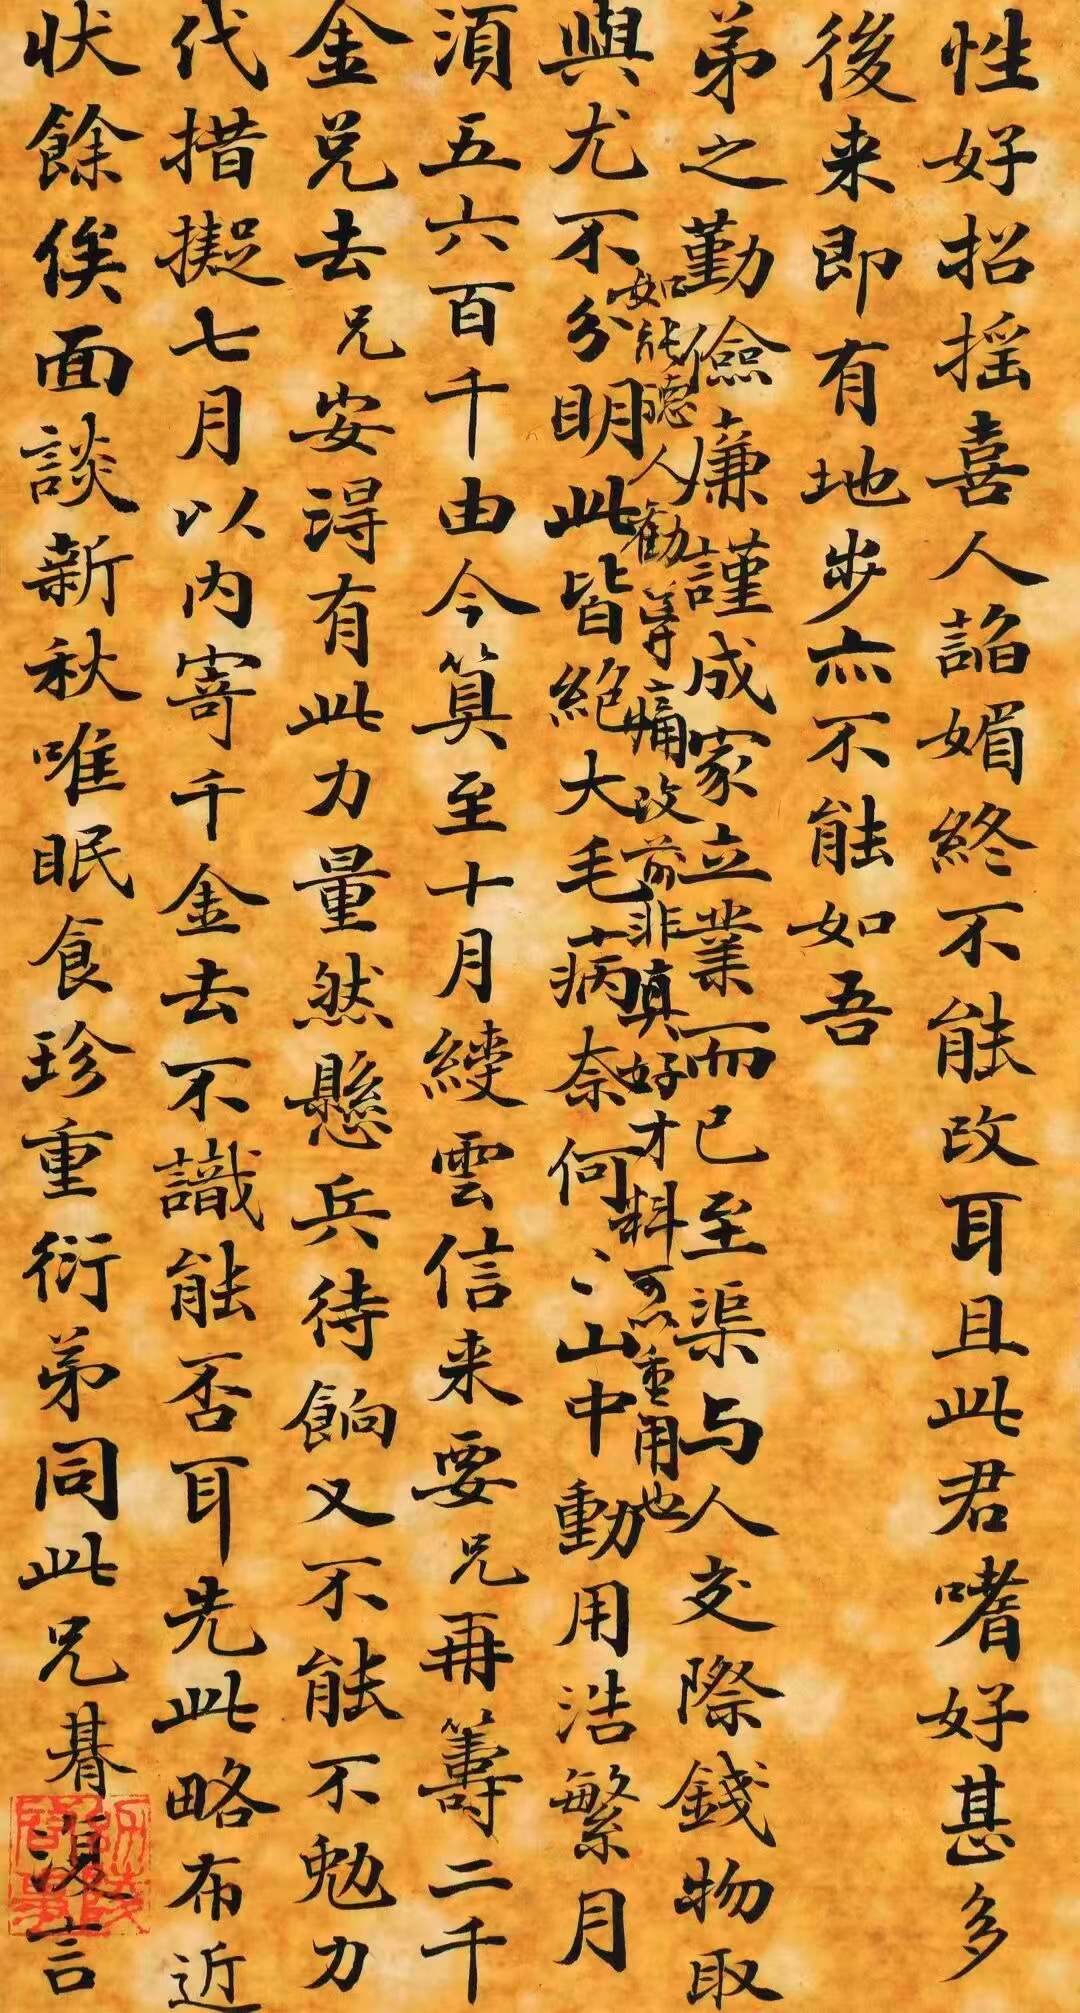 性好招摇喜人諂媚終不能改耳且此君嗜好甚多
後来即有地步亦不能如吾
弟之勤儉廉謹成家立業而已至渠与人交際錢物取
如能聴人勸導痛改前非真好才料可以重用也
與尤不分明此皆絶大毛病奈何〻山中動用浩繁月
須五六百千由今算至十月纔雲信来要兄再籌二千
金兑去兄安得有此力量然懸兵待餉又不能不勉力
代措擬七月以内寄千金去不識能否耳先此略布近
状餘俟面談新秋唯眠食珍重衍弟同此兄朞復言